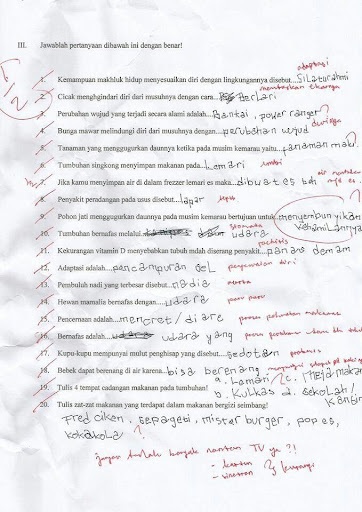 III. Jawablah pertanyaan dibawah ini dengan benar!
adaptasi
1. Kemampuan makhluk hidup menyesuaikan diri dengan lingkungannya disebut...Silaturahmi
memutuskan ekornya
2. Cicak menghgindari diri dari musuhnya dengan cara...berlari
3. Perubahan wujud yang terjadi secara alami adalah...Bantai, power ranger
durinya
4. Bunga mawar melindungi diri dari musuhnya dengan...perubahan wujud
5. Tanaman yang menggugurkan daunnya ketika pada musim kemarau yaitu...tanaman
6. Tumbuhan singkong menyimpan makanan pada...Lemari umbi
7. Jika kamu menyimpan air di dalam frezzer lemari es maka...dibuat es
8. Penyakit peradangan pada usus disebut...lapar
9. Pohon jati menggugurkan daunnya pada musim kemarau bertujuan untuk...menyembunyikan kehamilannya
stomata
10. Tumbuhan bernafas melalui...udara
11. Kekurangan vitamin D menyebabkan tubuh mdah diserang penyakit...panas demam
12. Adaptasi adalah...pencampuran gel penyesuaian diri
13. Pembuluh nadi yang terbesar disebut...nadia aorta
14. Hewan mamalia bernafas dengan...udara paru paru
15. Pencernaan adalah...mencret/diare proses
16. Bernafas adalah...udara yang proses
17. Kupu-kupu mempunyai mulut penghisap yang disebut...sedotan probosis
18. Bebek dapat berenang di air karena...bisa berenang
19. Tulis 4 tempat cadangan makanan pada tumbuhan! a. Laman c. meja makan
b. Kulkas d. sekolah/
20. Tulis zat-zat makanan yang terdapat dalam makanan bergizi seimbang!
Fred ciken, sepageti, mister burger, popes,
kokakola ?
jangan terlalu banyak nonton TV ya ?!